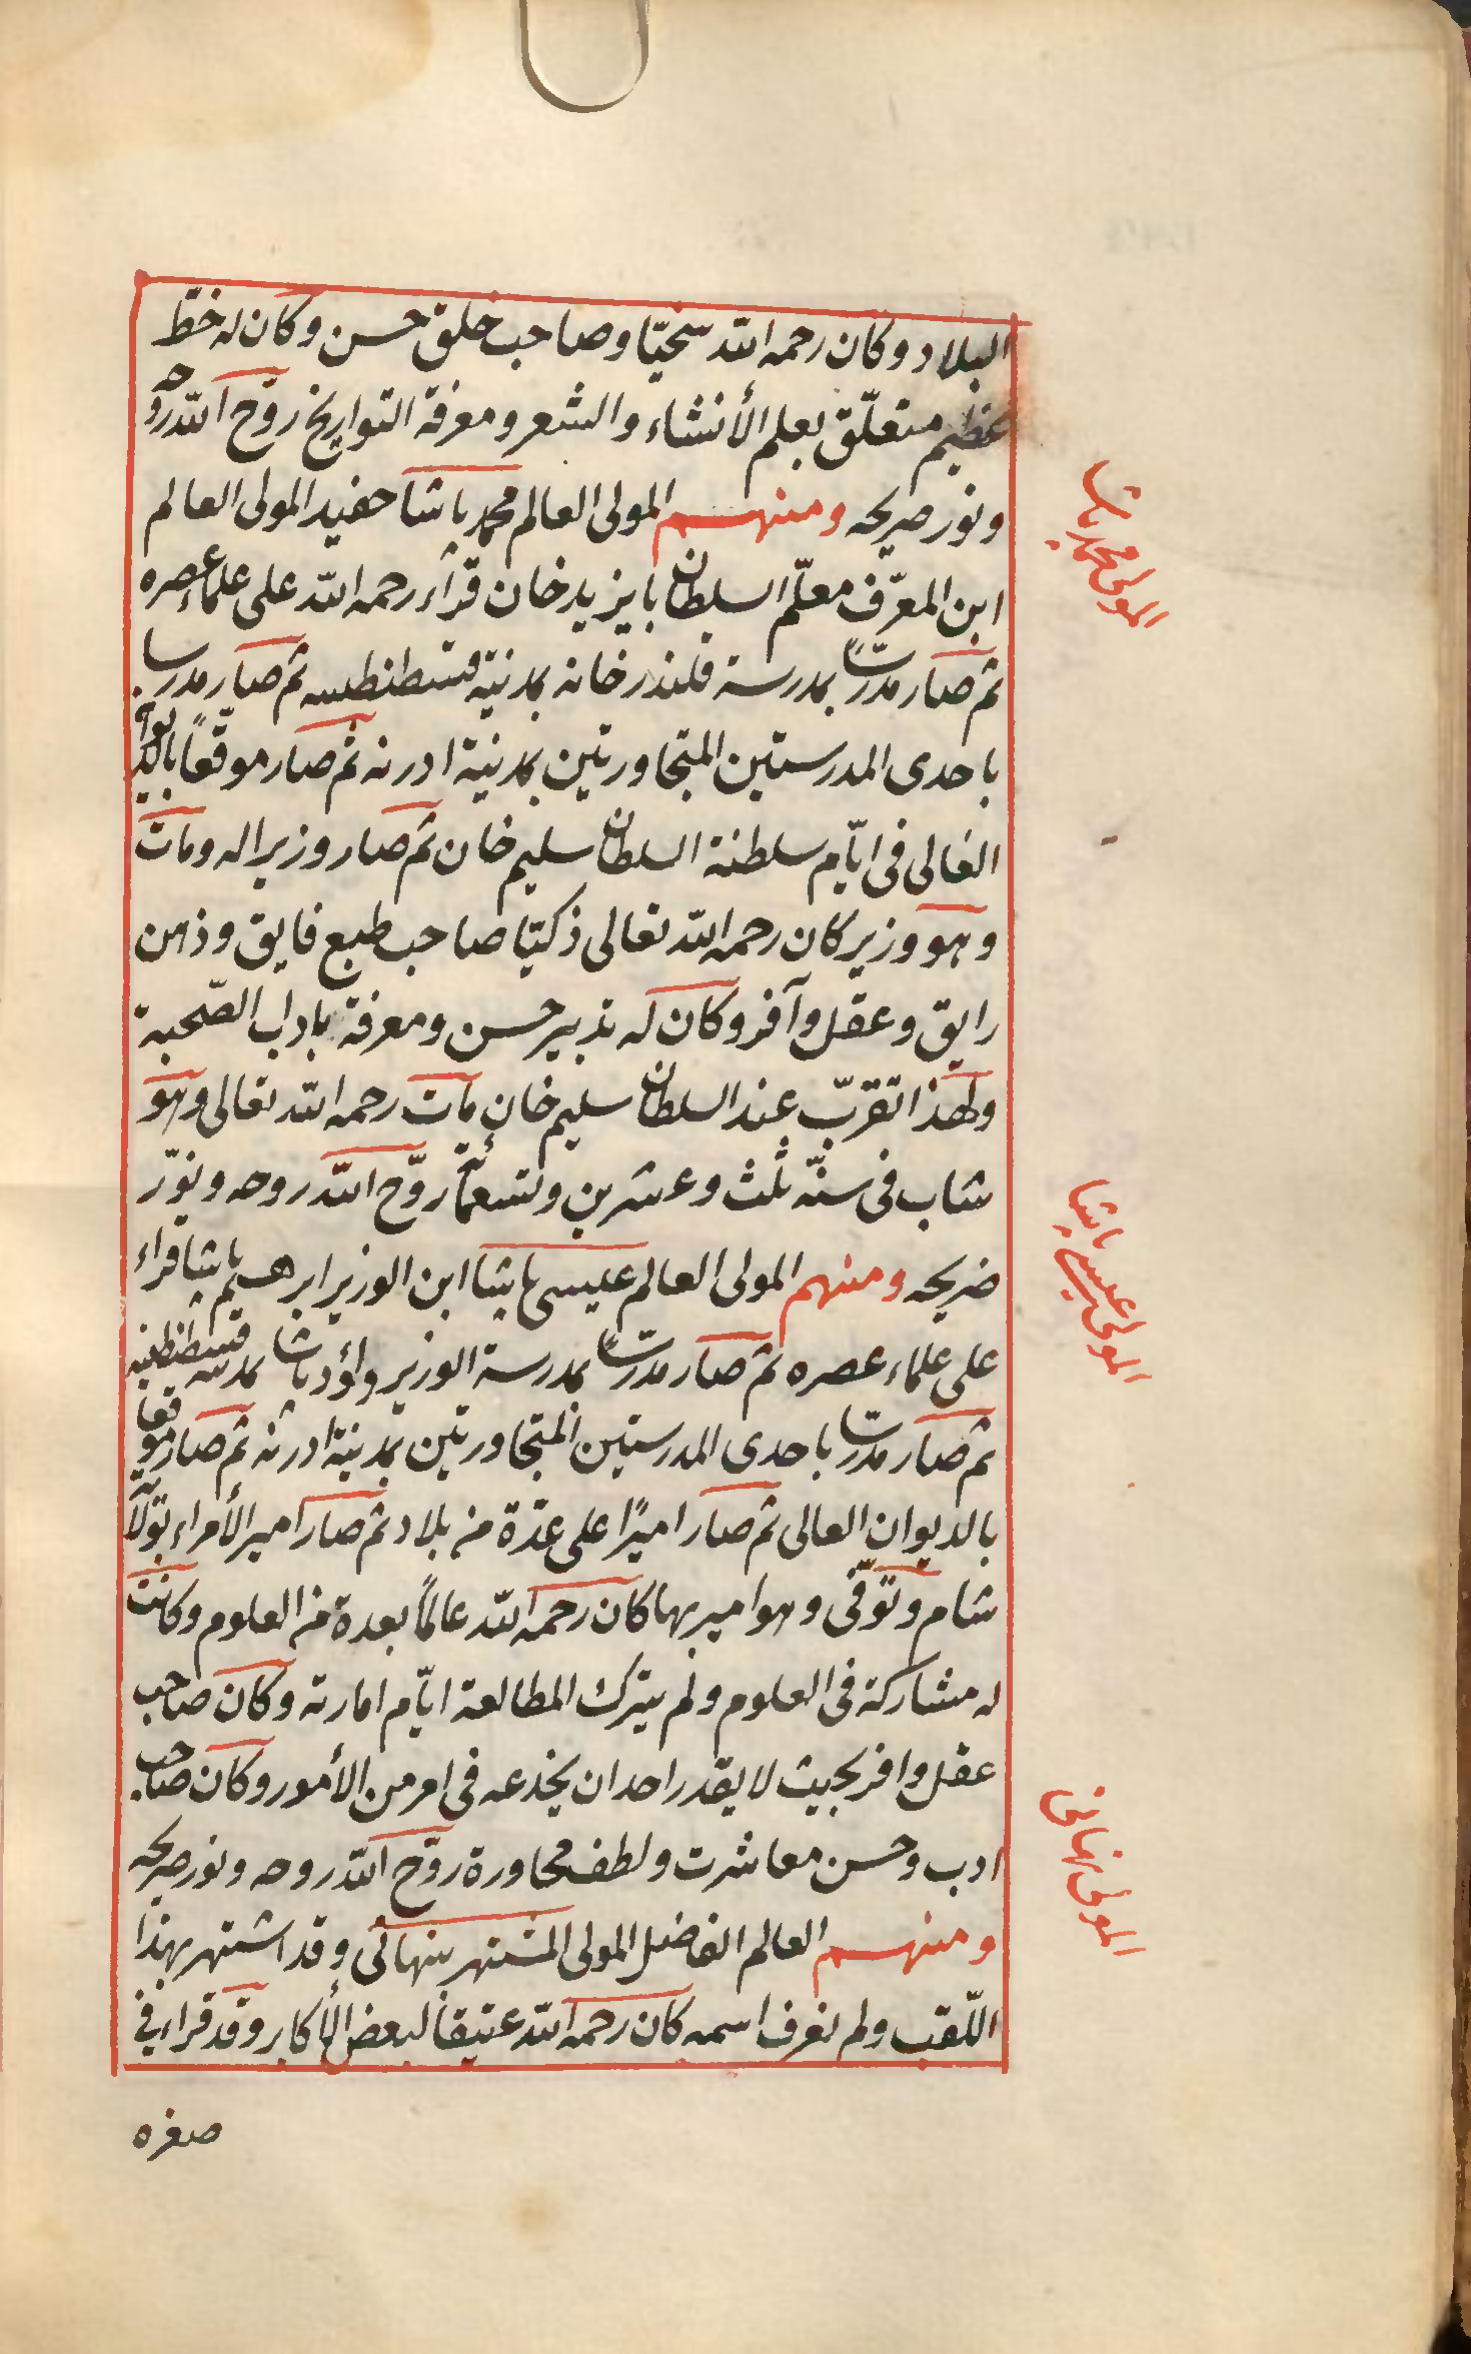 البلاد وكان رحمه الله سخيّا وصاحب خلق حسن وكان له خظّ
عظيم متعلّق بعلم الأنشاء والشعر ومعرفة التواريخ روّح الله روحه
ونور ضريحه ومنهم المولى العالم محمد باشا حفيد المولى العالم
ابن المعرّف معلّم السلطان بايزيد خان قرأء رحمه الله على علماء عصره
ثم صار مدرّسًا بمدرسة قلندر خانه بمدينة قسطنطنيه ثم صار مدرسا
باحدى المدرستين المتجاورتين بمدينة ادرنه ثم صار موقّعاً بالديوان
العالى فى ايّام سلطنة السلطان سليم خان ثم صار وزيرا له ومات
وهو وزير كان رحمه الله تعالى ذكيّا صاحب طبع فايق وذهن
رايق وعقل وآفر وكان له تدبير حسن ومعرفة باداب الصّحبة
ولهذا تقرّب عند السلطان سليم خان مات رحمه الله تعالى وهو
شاب فى سنّة ثلث وعشرين وتسعمائة روّح الله روحه ونوّر
ضريحه ومنهم المولى العالم عيسى باشا ابن الوزير ابرهيم باشا قراء
على علماء عصره ثم صار مدرّسًا بمدرسة الوزير داؤد باشا بمدينة قسطنطنيه
ثم صار مدرّسا باحدى المدرستين المتجاورتين بمدينة ادرنه ثم صار موقعا
بالديوان العالى ثم صار اميرًا على عدّة من بلاد ثم صار امير الأمراء بتولّا
شام وتوّفى وهو امير بها كان رحمه الله عالماً بعدة من العلوم وكانت
له مشاركة فى العلوم ولم يترك المطالعة ايّام امارته وكان صاحب
عقل وافر بحيث لا يقدر احد ان يخدعه فى امر من الأمور وكان صاحب
ادب وحسن معاشرت ولطف محاورة روّح الله روحه ونور ضريحه
ومنهم العالم الفاضل المولى المشتهر بنهائى وقد اشتهر بهذا
اللّقب ولم نعرف اسمه كان رحمه الله عتيقاً لبعض الأكابر وقد قراء فى
صغره
المولى محمد باشا
المولى عيسى باشا
المولى نهانى